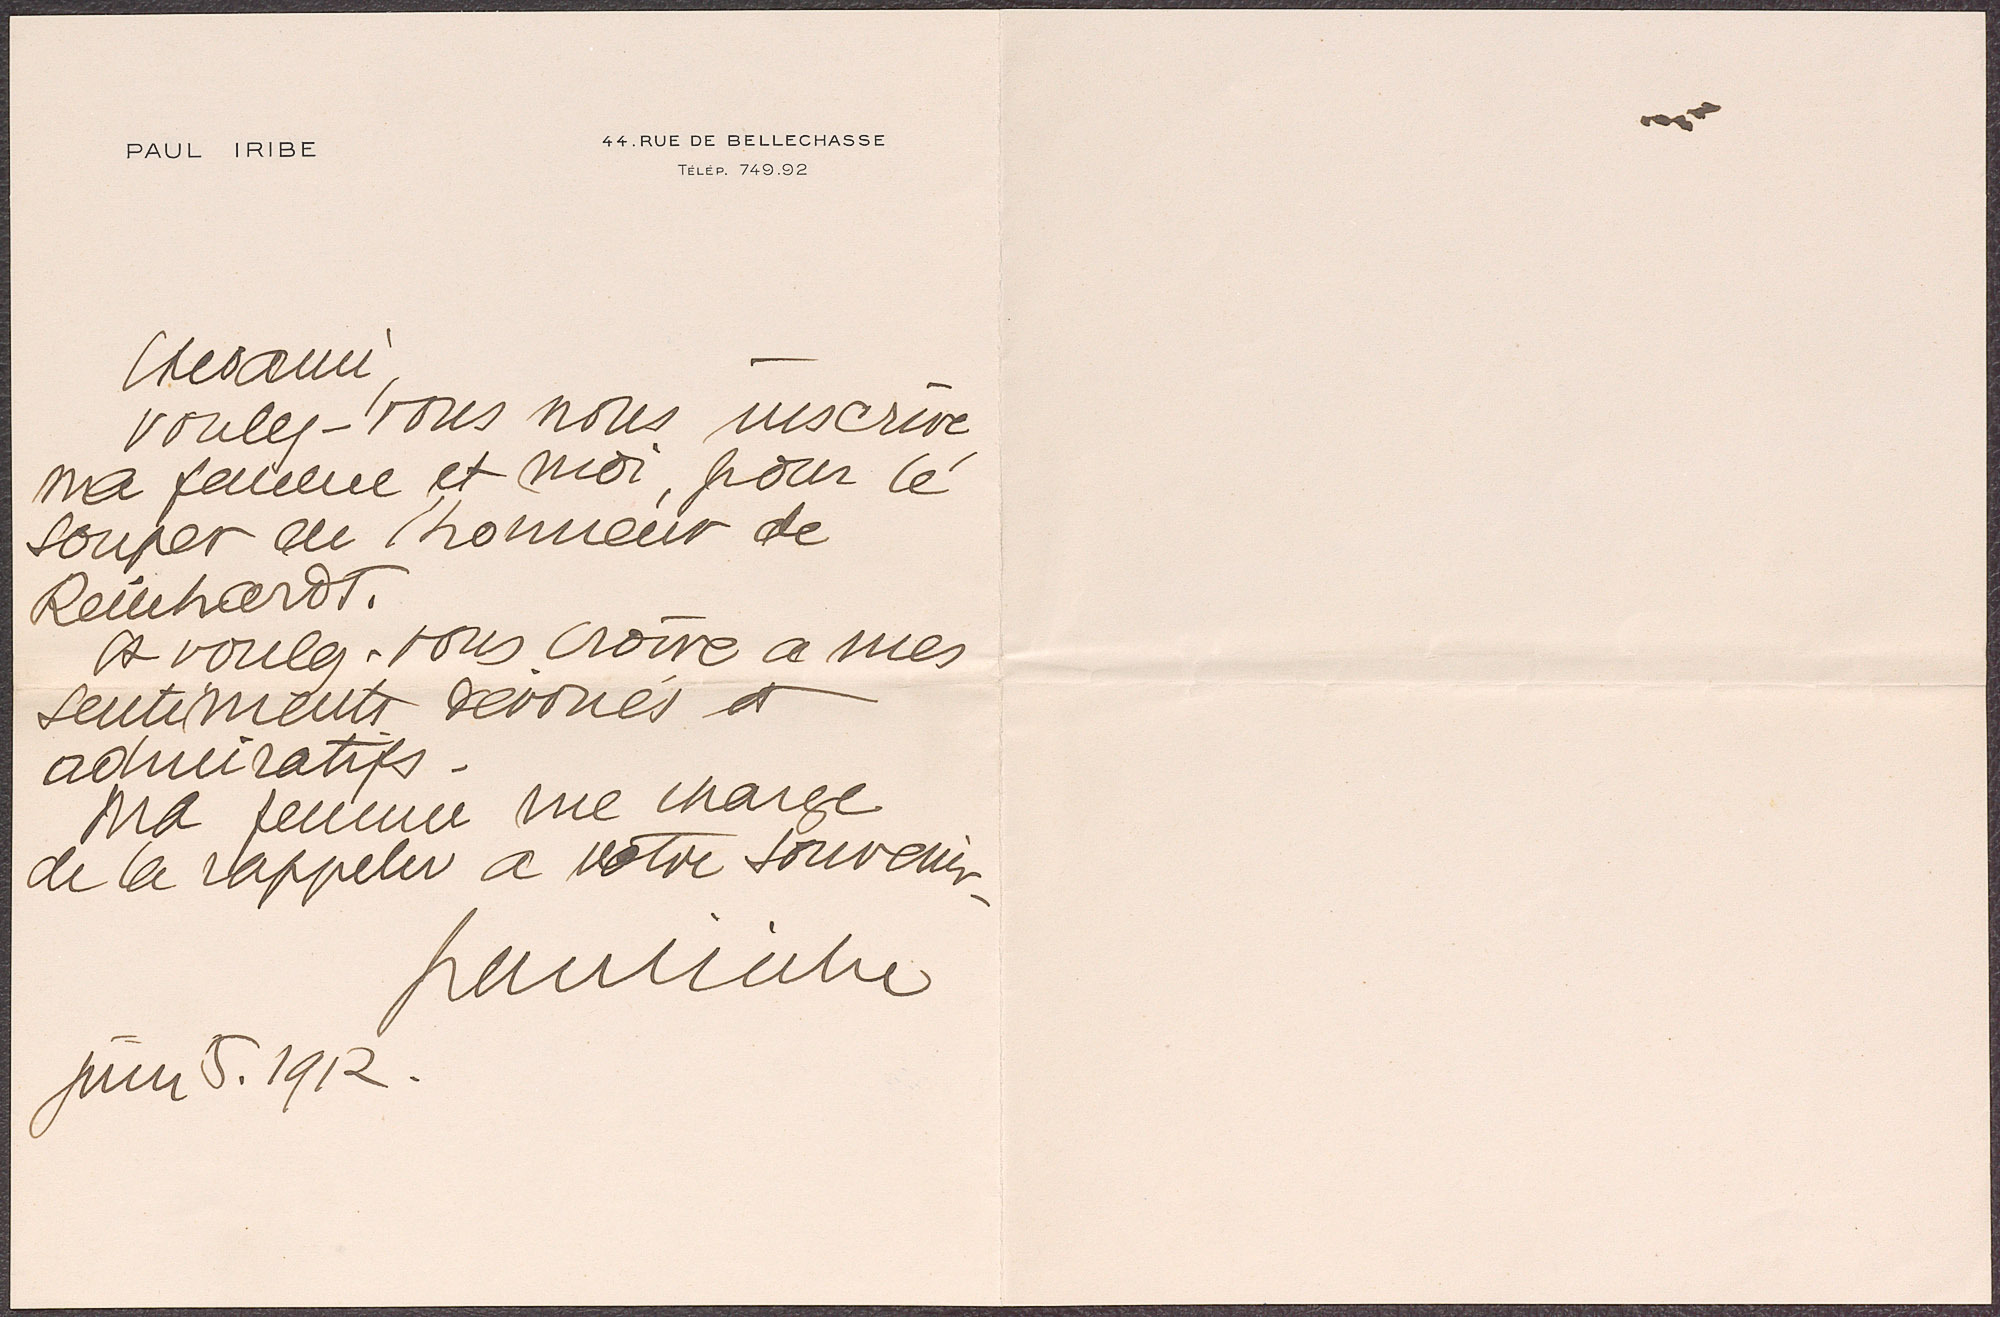 PAUL IRIBE
44. RUE DE BELLECHASSE
TÉLÉP. 749.92
Cher ami,
voulez-vous nous inscrire
ma femme et moi, pour le
souper en l'honneur de
Reinhardt.
Et voulez-vous croire a mes
sentiments dévoués et
admiratifs -
Ma femme me charge
de la rappeler a votre souvenir -
Paul Iribe
juin 5. 1912.